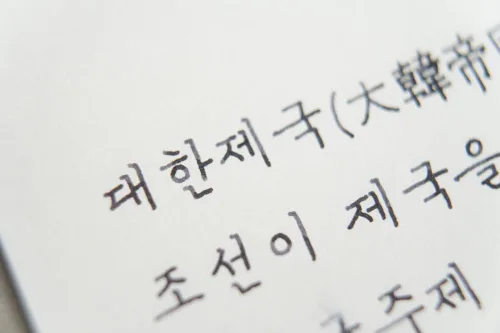 대한제국(大韓帝
조선이 제국을
주제